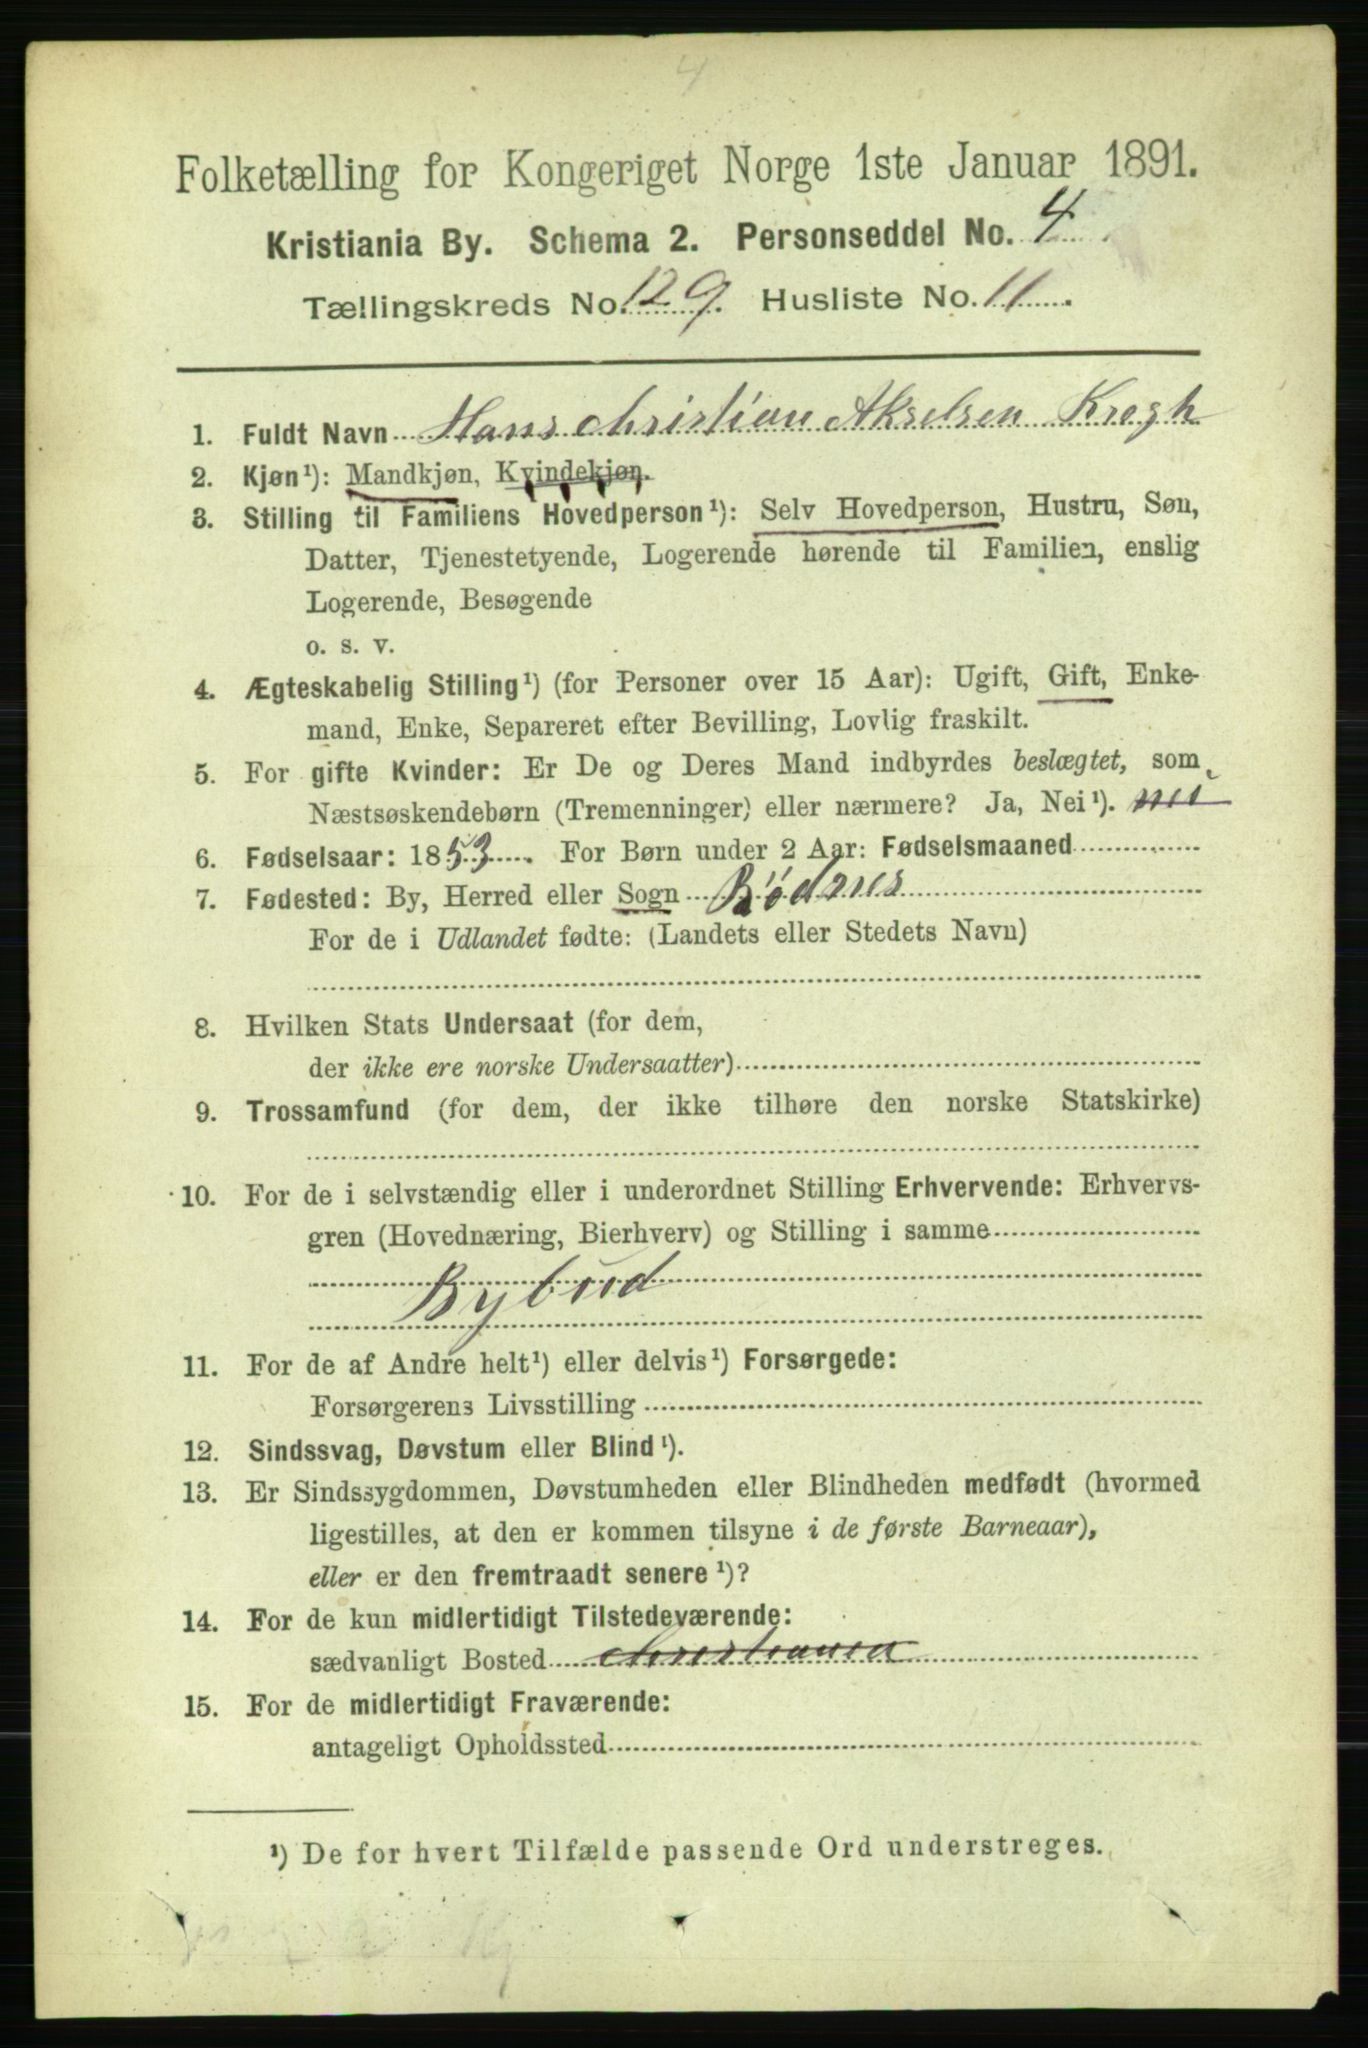 4
Folketælling for Kongeriget Norge 1ste Januar 1891.
Kristiania By. Schema 2. Personseddel No. 4
Tællingskreds No. 129. Husliste No. 11.
1. Fuldt Navn Hans Christian Akselsen Krogh
2. Kjøn¹): Mandkjøn, Kvindekjøn.
3. Stilling til Familiens Hovedperson¹): Selv Hovedperson, Hustru, Søn,
Datter, Tjenestetyende, Logerende hørende til Familien, enslig
Logerende, Besøgende
o. s. v.
4. Ægteskabelig Stilling¹) (for Personer over 15 Aar): Ugift, Gift, Enke-
mand, Enke, Separeret efter Bevilling, Lovlig fraskilt.
5. For gifte Kvinder: Er De og Deres Mand indbyrdes beslægtet, som
Næstsøskendebørn (Tremenninger) eller nærmere? Ja, Nei¹). nei
6. Fødselsaar: 1853. For Børn under 2 Aar: Fødselsmaaned
7. Fødested: By, Herred eller Sogn Rödnes
For de i Udlandet fødte: (Landets eller Stedets Navn)
8. Hvilken Stats Undersaat (for dem,
der ikke ere norske Undersaatter)
9. Trossamfund (for dem, der ikke tilhøre den norske Statskirke)
10. For de i selvstændig eller i underordnet Stilling Erhvervende: Erhvervs-
gren (Hovednæring, Bierhverv) og Stilling i samme
Bybud
11. For de af Andre helt¹) eller delvis¹) Forsørgede:
Forsørgerens Livsstilling
12. Sindssvag, Døvstum eller Blind¹).
13. Er Sindssygdommen, Døvstumheden eller Blindheden medfødt (hvormed
ligestilles, at den er kommen tilsyne i de første Barneaar),
eller er den fremtraadt senere¹)?
14. For de kun midlertidigt Tilstedeværende:
sædvanligt Bosted Christiania
15. For de midlertidigt Fraværende:
antageligt Opholdssted
¹) De for hvert Tilfælde passende Ord understreges.